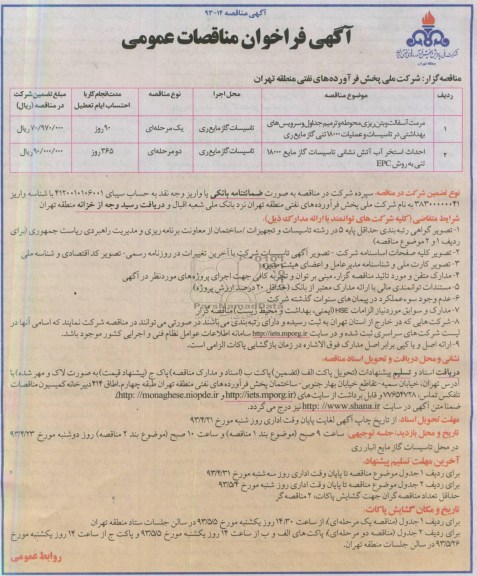 آگهی مناقصه ۱۴-۹۳
آگهی فراخوان مناقصات عمومی
مناقصه گزار: شرکت ملی پخش فرآورده‌های نفتی منطقه تهران
ردیف موضوع مناقصه محل اجرا نوع مناقصه مدت انجام کار با احتساب ایام تعطیل مبلغ تضمین شرکت در مناقصه (ریال)
۱ مرمت آسفالت و بتن ریزی محوطه و ترمیم جداول و سرویس‌های بهداشتی در تاسیسات و عملیات ۱۸۰۰۰ تنی گاز مایع ری تاسیسات گاز مایع ری یک مرحله‌ای ۹۰ روز ۷۰/۹۷۰/۰۰۰ ریال
۲ احداث استخر آب آتش نشانی تاسیسات گاز مایع ۱۸۰۰۰ تنی به روش EPC تاسیسات گاز مایع ری دو مرحله‌ای ۳۶۵ روز ۹۰/۰۰۰/۰۰۰ ریال
نوع تضمین شرکت در مناقصه: سپرده شرکت در مناقصه به صورت ضمانتنامه بانکی یا واریز وجه نقد به حساب سیبای ۴۱۲۰۰۱۰۱۰۶۰۰۱ با شناسه واریز
۳۸۳۰۰۰۰۰۰۴۱ به نام شرکت ملی پخش فرآورده‌های نفتی منطقه تهران نزد بانک ملی شعبه اقبال و دریافت رسید وجه از خزانه منطقه تهران
شرایط متقاضی (کلیه شرکت های توانمند با ارائه مدارک ذیل).
۱- تصویر گواهی رتبه بندی حداقل پایه ۵ در رشته تاسیسات و تجهیزات / ساختمان از معاونت برنامه ریزی و مدیریت راهبردی ریاست جمهوری (برای
ردیف ۱ و ۲ موضوع مناقصه)
۲- تصویر کلیه صفحات اساسنامه شرکت - تصویر آگهی تاسیس شرکت با آخرین تغییرات در روزنامه رسمی - تصویر کد اقتصادی و شناسه ملی
۳- تصویر کارت ملی و شناسنامه مدیر عامل و اعضای هیئت مدیره
۴- مدارک متقن و مورد تائید مناقصه گزار، مبنی بر توان و تجربه کافی جهت اجرای پروژه‌های موردنظر در آگهی
۵- مستندات توانمندی مالی با ارائه مدارک معتبر از بانک (حداقل ۲۰ درصد ارزش پروژه)
۶- عدم وجود سوء عملکرد در پیمان های سنوات گذشته شرکت
۷- مدارک و سوابق موردنیاز الزامات HSE (ایمنی، بهداشت و محیط زیست) مناقصه گزار
۸- شرکت‌هایی که در خارج از استان تهران به ثبت رسیده و دارای رتبه‌بندی می‌باشند در صورتی می‌توانند در مناقصه شرکت نمایند که اسامی آنها در
لیست شرکت‌های سراسری ثبت شده و در سایت http://iets.mporg.ir سامانه اطلاعات عوامل نظام فنی و اجرایی کشور موجود باشد.
۹- ارائه اصل و یا کپی برابر اصل مدارک فوق الاشاره در زمان بازگشایی پاکات الزامی است.
نشانی و محل دریافت و تحویل اسناد مناقصه:
دریافت اسناد و تسلیم پیشنهادات (تحویل پاکت الف (تضمین) پاکت ب (اسناد و مدارک مناقصه) پاکت ج (پیشنهاد قیمت) به صورت لاک و مهر شده) با
آدرس تهران، خیابان سمیه- تقاطع خیابان بهار جنوبی- ساختمان پخش فرآورده های نفتی منطقه تهران طبقه چهارم، اطاق ۲۱۴ دبیرخانه کمیسیون مناقصات
تلفکس تماس: ۷۷۶۵۴۷۲۸ و قابل برداشت از سایت‌های (http://iets.mporg.ir و http://monaghese.niopdc.ir)
ضمنا متن آگهی در سایت http://www.shana.ir نیز درج می‌گردد.
مهلت تحویل اسناد: از تاریخ چاپ آگهی لغایت پایان وقت اداری روز شنبه مورخ ۹۳/۴/۲۱
تاریخ و محل بازدید/ جلسه توجیهی: ساعت ۹ صبح (موضوع بند ۱ مناقصه) و ساعت ۱۰ صبح (موضوع بند ۲ مناقصه) روز دوشنبه مورخ ۹۳/۴/۲۳
در محل تاسیسات گاز مایع انبار ری
آخرین مهلت تسلیم پیشنهاد:
برای ردیف ۱ جدول موضوع مناقصه تا پایان وقت اداری روز سه شنبه مورخ ۹۳/۴/۳۱
برای ردیف ۲ جدول موضوع مناقصه تا پایان وقت اداری روز شنبه مورخ ۹۳/۵/۴
حداقل تعداد مناقصه گران جهت گشایش پاکات: ۲ مناقصه گر
تاریخ و مکان گشایش پاکات:
برای ردیف ۱ جدول (مناقصه یک مرحله‌ای) از ساعت ۱۴/۳۰ روز یکشنبه مورخ ۹۳/۵/۵ در سالن جلسات ستاد منطقه تهران
برای ردیف ۲ جدول (مناقصه دو مرحله‌ای) پاکت های الف و ب از ساعت ۱۴ روز یکشنبه مورخ ۹۳/۵/۵ و پاکت ج از ساعت ۱۴ روز یکشنبه مورخ
۹۳/۵/۲۶ در سالن جلسات منطقه تهران.
روابط عمومی